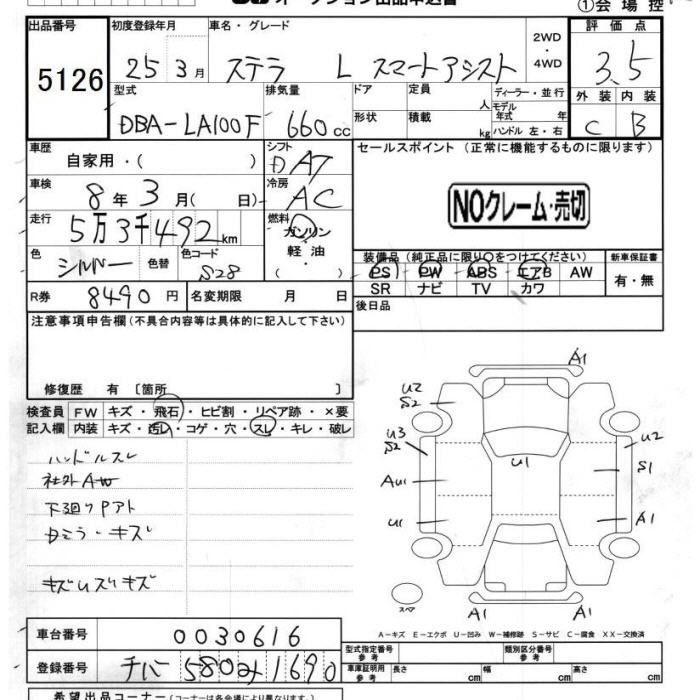 オークション出品申込書
①会場控
出品番号
5126
初度登録年月
25 3月
車名・グレード
ステラ L スマートアシスト
2WD
・
4WD
評価点
3.5
外装 内装
C B
型式
DBA-LA100F
排気量
660cc
ドア
形状
定員 人
積載 kg
ディーラー・並行
モデル
年式 年
ハンドル 左・右
車歴
自家用・( )
シフト
D AT
セールスポイント (正常に機能するものに限ります)
車検
8年3月( 日)
冷房
AC
NOクレーム・売切
走行
5万3千492km
燃料
ガソリン
軽油・
色
シルバー
色替
色コード
S28
装備品(純正品に限り○をつけてください)
新車保証書
PS PW ABS エアB AW
有・無
SR ナビ TV カワ
R券 8490円
名変期限 月 日
後日品
注意事項申告欄(不具合内容等は具体的に記入して下さい)
修復歴 有〔箇所 〕
検査員
記入欄
FW キズ・飛石・ヒビ割・リペア跡・×要
内装 キズ・汚レ・コゲ・穴・スレ・キレ・破レ
ハンドルスレ
社外AW
下廻りPアト
キズUズリキズ
A1
U2
S2
U3
S2
U2
U1
S1
A1
U1
A1
スペア
A1
A1
A-キズ E-エクボ U-凹み W-補修跡 S-サビ C-腐食 XX-交換済
車台番号
0030616
登録番号
580 1690
型式指定番号
類別区分番号
車庫証明用
参考
長さ cm 幅 cm 高さ cm
希望出品コーナー(コーナーは各会場により異なります。)